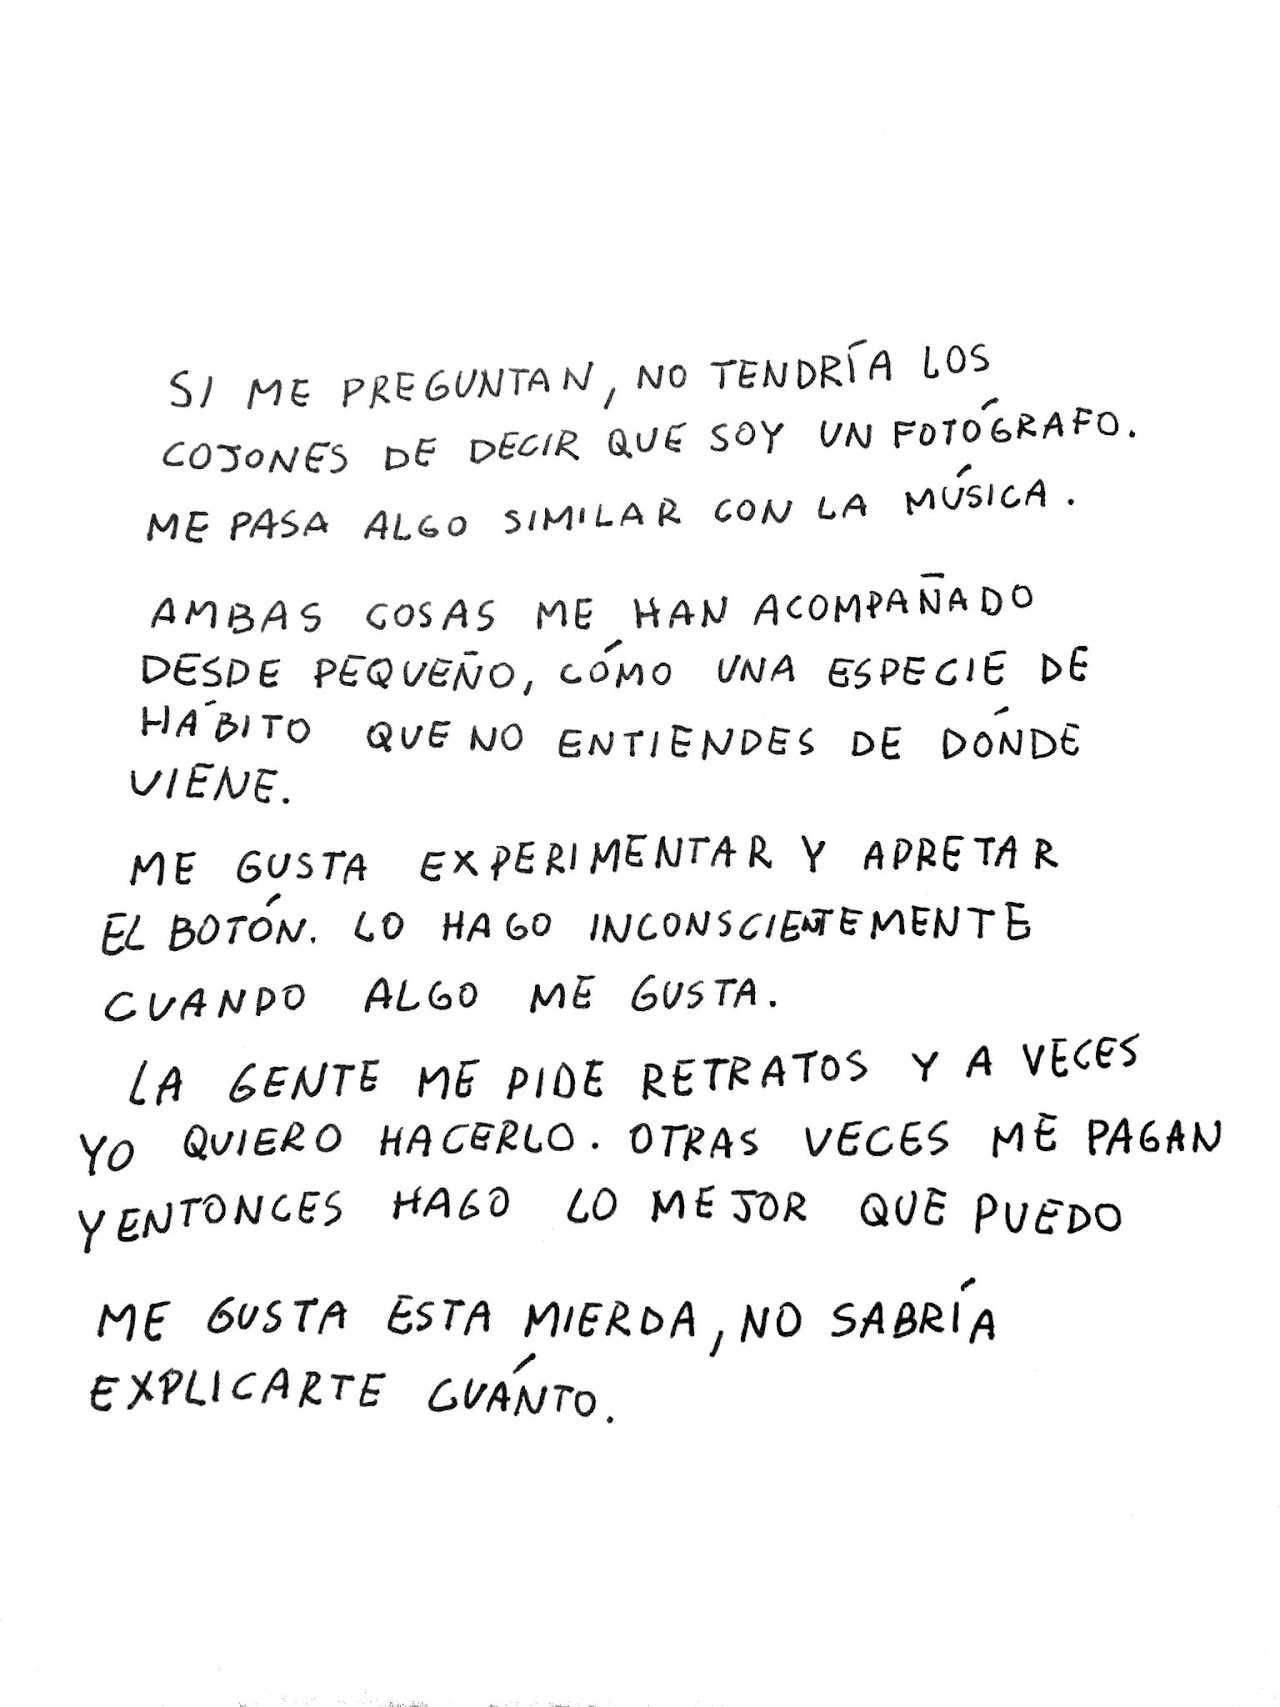 SI ME PREGUNTAN, NO TENDRÍA LOS
COJONES DE DECIR QUE SOY UN FOTÓGRAFO.
ME PASA ALGO SIMILAR CON LA MÚSICA.
AMBAS COSAS ME HAN ACOMPAÑADO
DESDE PEQUEÑO, CÓMO UNA ESPECIE DE
HÁBITO QUE NO ENTIENDES DE DÓNDE
VIENE.
ME GUSTA EXPERIMENTAR Y APRETAR
EL BOTÓN. LO HAGO INCONSCIENTEMENTE
CUANDO ALGO ME GUSTA.
LA GENTE ME PIDE RETRATOS Y A VECES
YO QUIERO HACERLO. OTRAS VECES ME PAGAN
Y ENTONCES HAGO LO MEJOR QUE PUEDO
ME GUSTA ESTA MIERDA, NO SABRÍA
EXPLICARTE CUÁNTO.